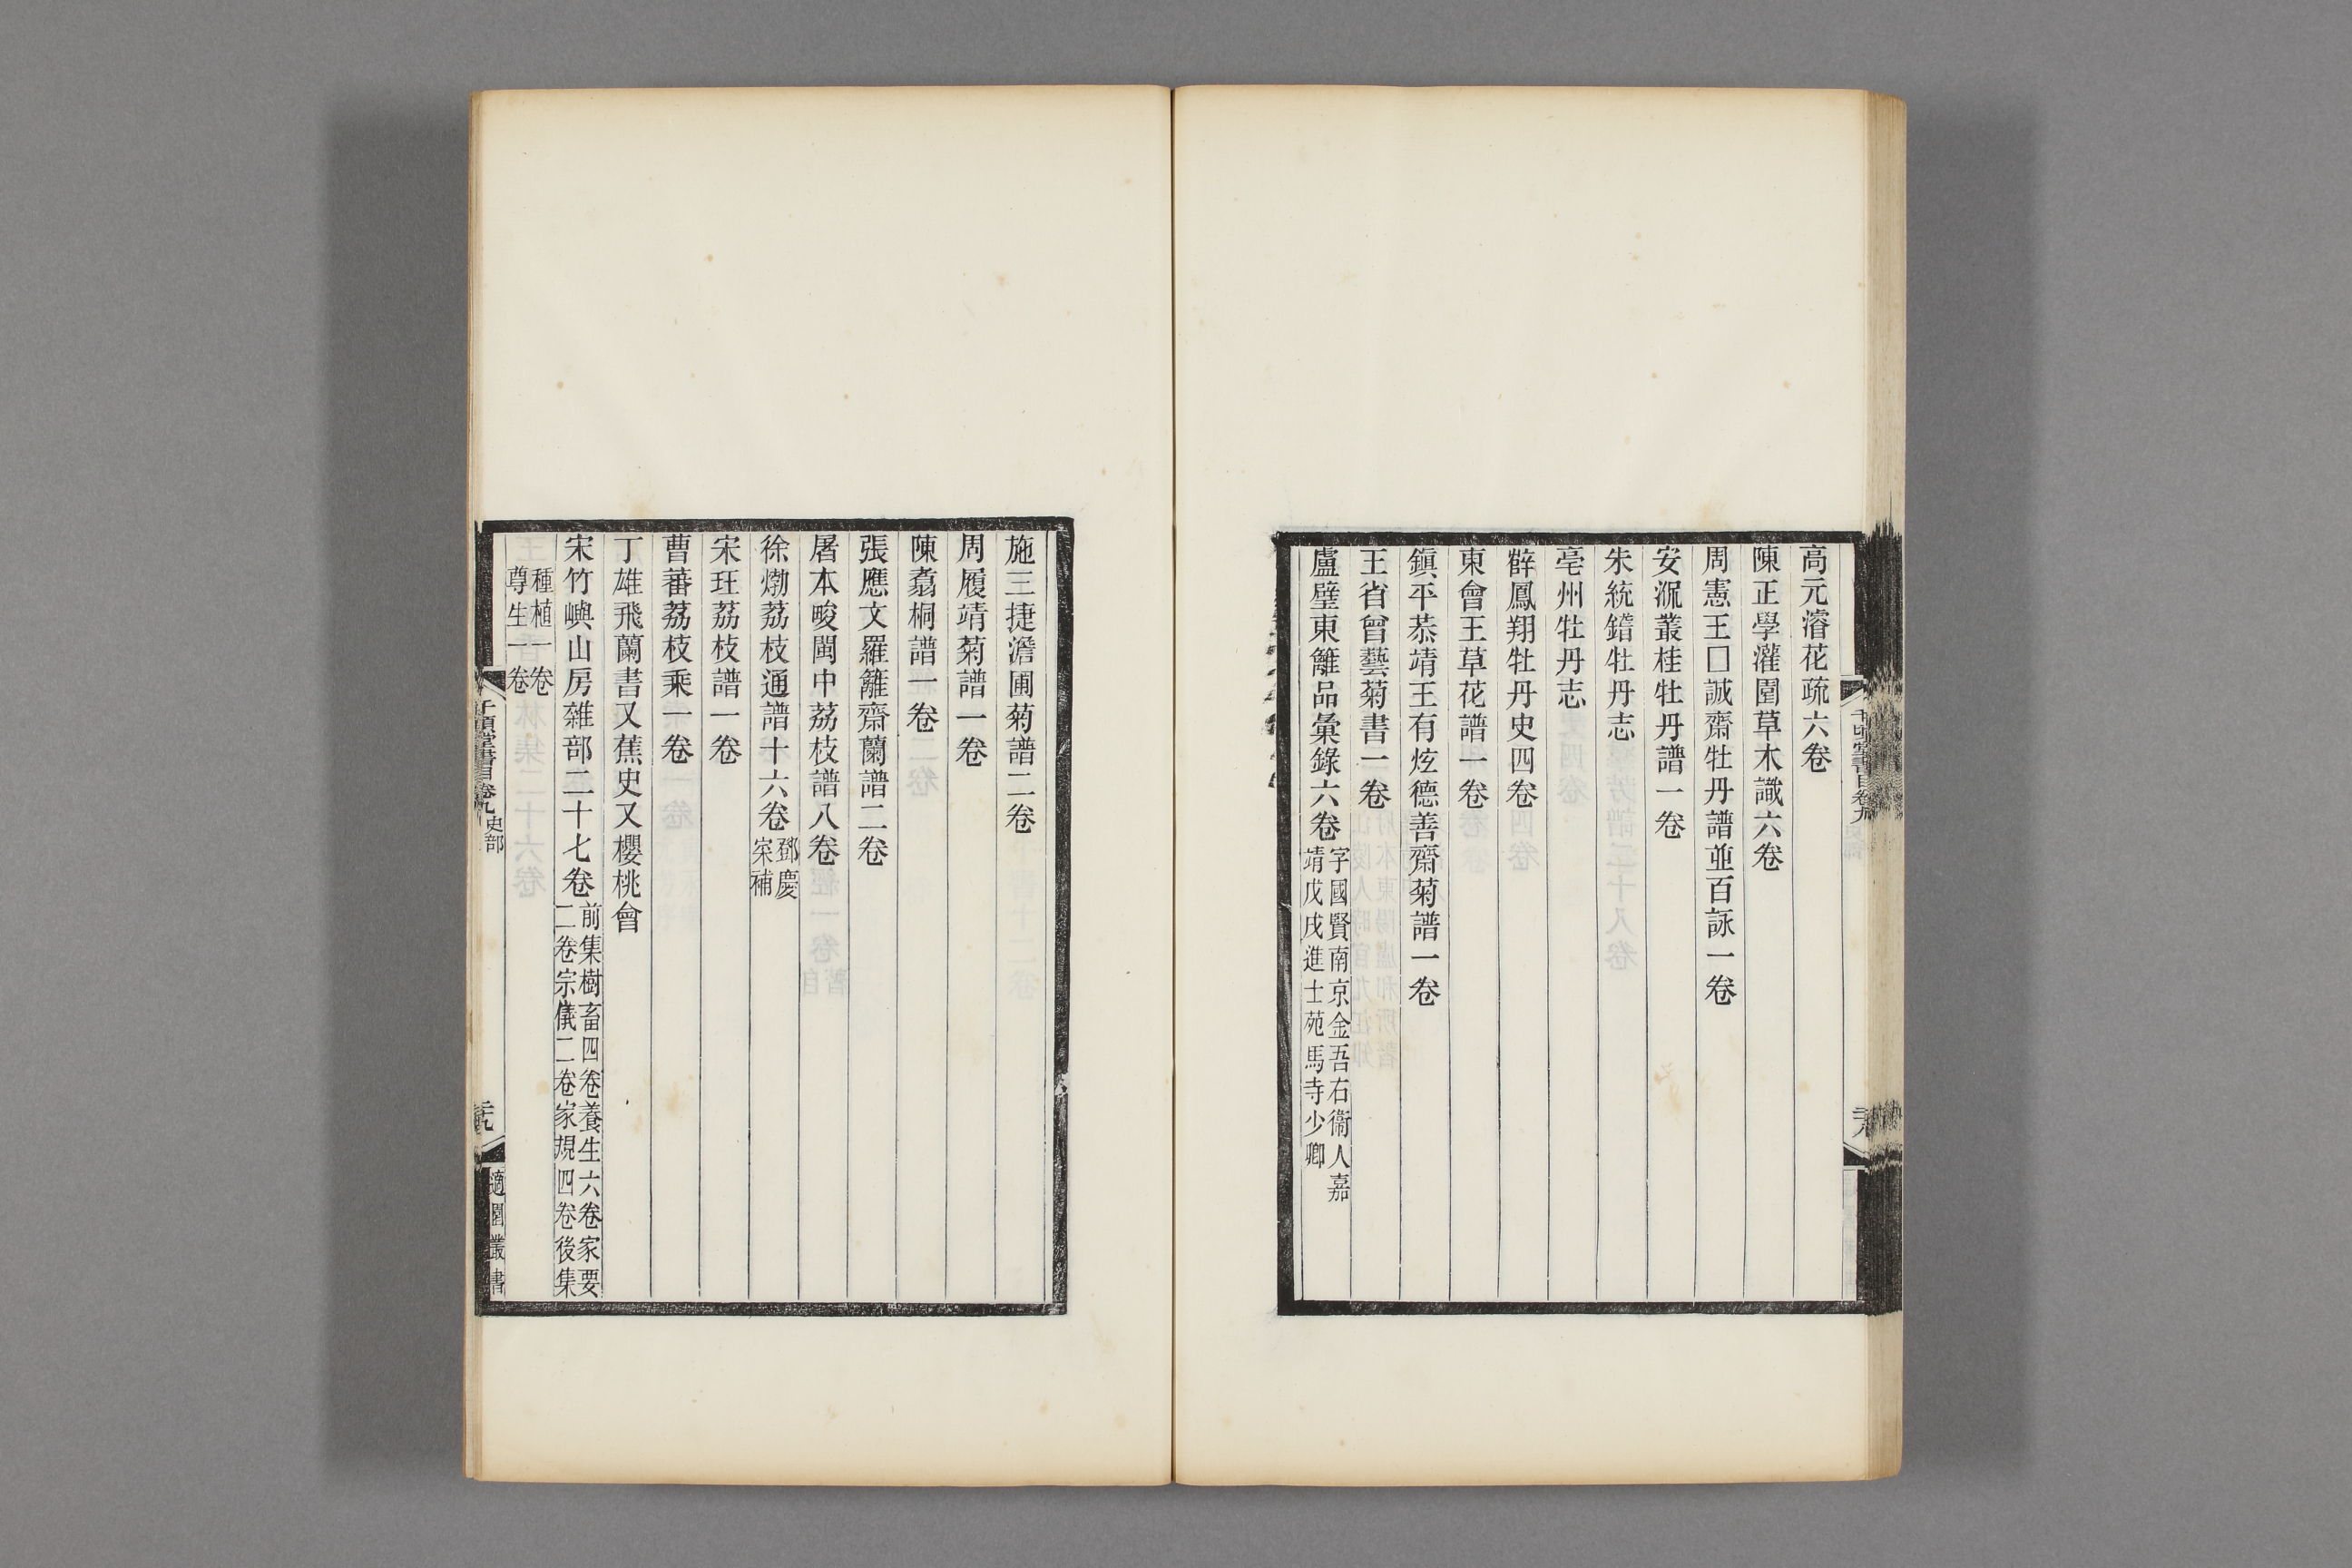 高元濬花疏六卷
陳正學灌園草木識六卷
周憲王囗誠齋牡丹譜並百詠一卷
安㴶叢桂牡丹譜一卷
朱統鐕牡丹志
亳州牡丹志
薛鳳翔牡丹史四卷
東會王草花譜一卷
鎮平恭靖王有炫德善齋菊譜一卷
王省曾藝菊書一卷
盧璧東籬品彙錄六卷字國賢南京金吾右衞人嘉
靖戊戌進士苑馬寺少卿
千頃堂書目卷九
二十八
施三捷澹圃菊譜二卷
周履靖菊譜一卷
陳翥桐譜一卷
張應文羅籬齋蘭譜二卷
屠本畯閩中荔枝譜八卷
徐𤊹荔枝通譜十六卷鄧慶
寀補
宋珏荔枝譜一卷
曹蕃荔枝乘一卷
丁雄飛蘭書又蕉史又櫻桃會
宋竹嶼山房雜部二十七卷前集樹畜四卷養生六卷家要
二卷宗儀二卷家規四卷後集
種植一卷
尊生一卷
千頃堂書目卷九 史部
二十九
適園叢書